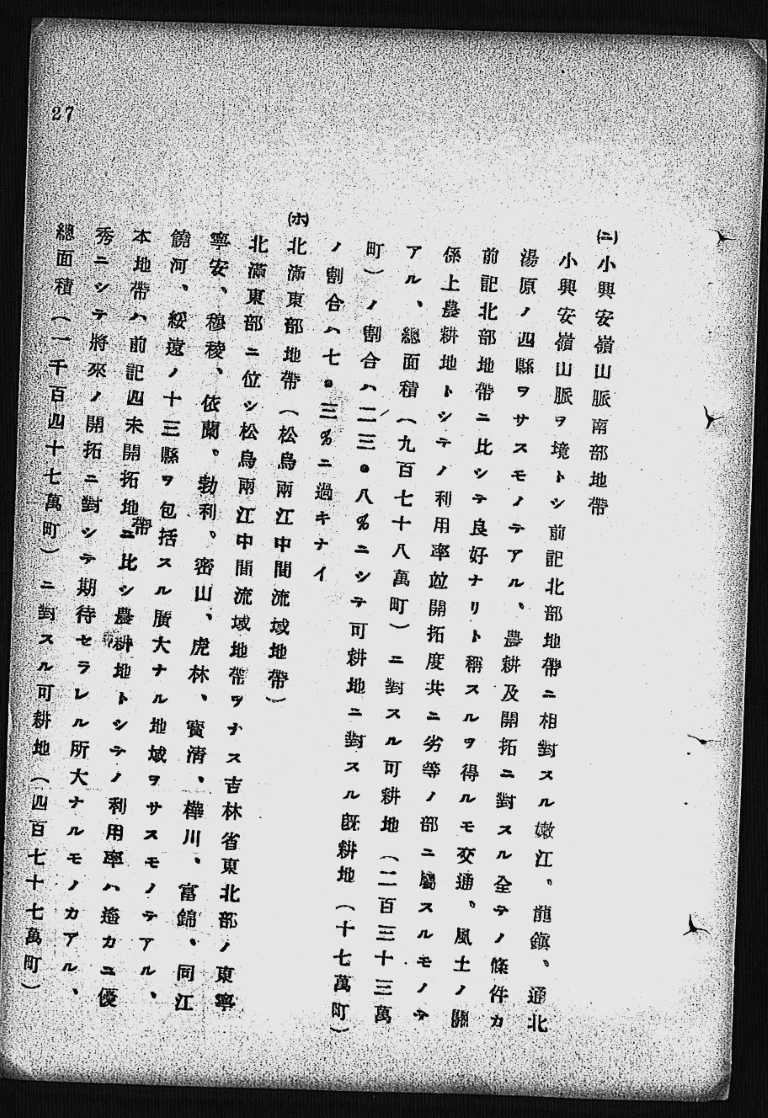 27
㈡小興安嶺山脈南部地帶
小興安嶺山脈ヲ境トシ前記北部地帶ニ相對スル嫩江、龍鎭、通北
湯原ノ四縣ヲサスモノテアル、農耕及開拓ニ對スル全テノ條件カ
前記北部地帶ニ比シテ良好ナリト稱スルヲ得ルモ交通、風土ノ關
係上農耕地トシテノ利用率竝開拓度共ニ劣等ノ部ニ屬スルモノテ
アル、總面積(九百七十八萬町)ニ對スル可耕地(二百三十三萬
町)ノ割合ハ二三・八%ニシテ可耕地ニ對スル既耕地(十七萬町)
ノ割合ハ七・三%ニ過キナイ
㈭北滿東部地帶(松烏兩江中間流域地帶)
北滿東部ニ位シ松烏兩江中間流域地帶ヲナス吉林省東北部ノ東寧
寧安、穆稜、依蘭、勃利、密山、虎林、寳淸、樺川、富錦、同江
饒河、綏遠ノ十三縣ヲ包括スル廣大ナル地域ヲサスモノテアル、
本地帶ハ前記四未開拓地帶ニ比シ農耕地トシテノ利用率ハ遙カニ優
秀ニシテ將來ノ開拓ニ對シテ期待セラレル所大ナルモノカアル、
總面積(一千百四十七萬町)ニ對スル可耕地(四百七十七萬町)